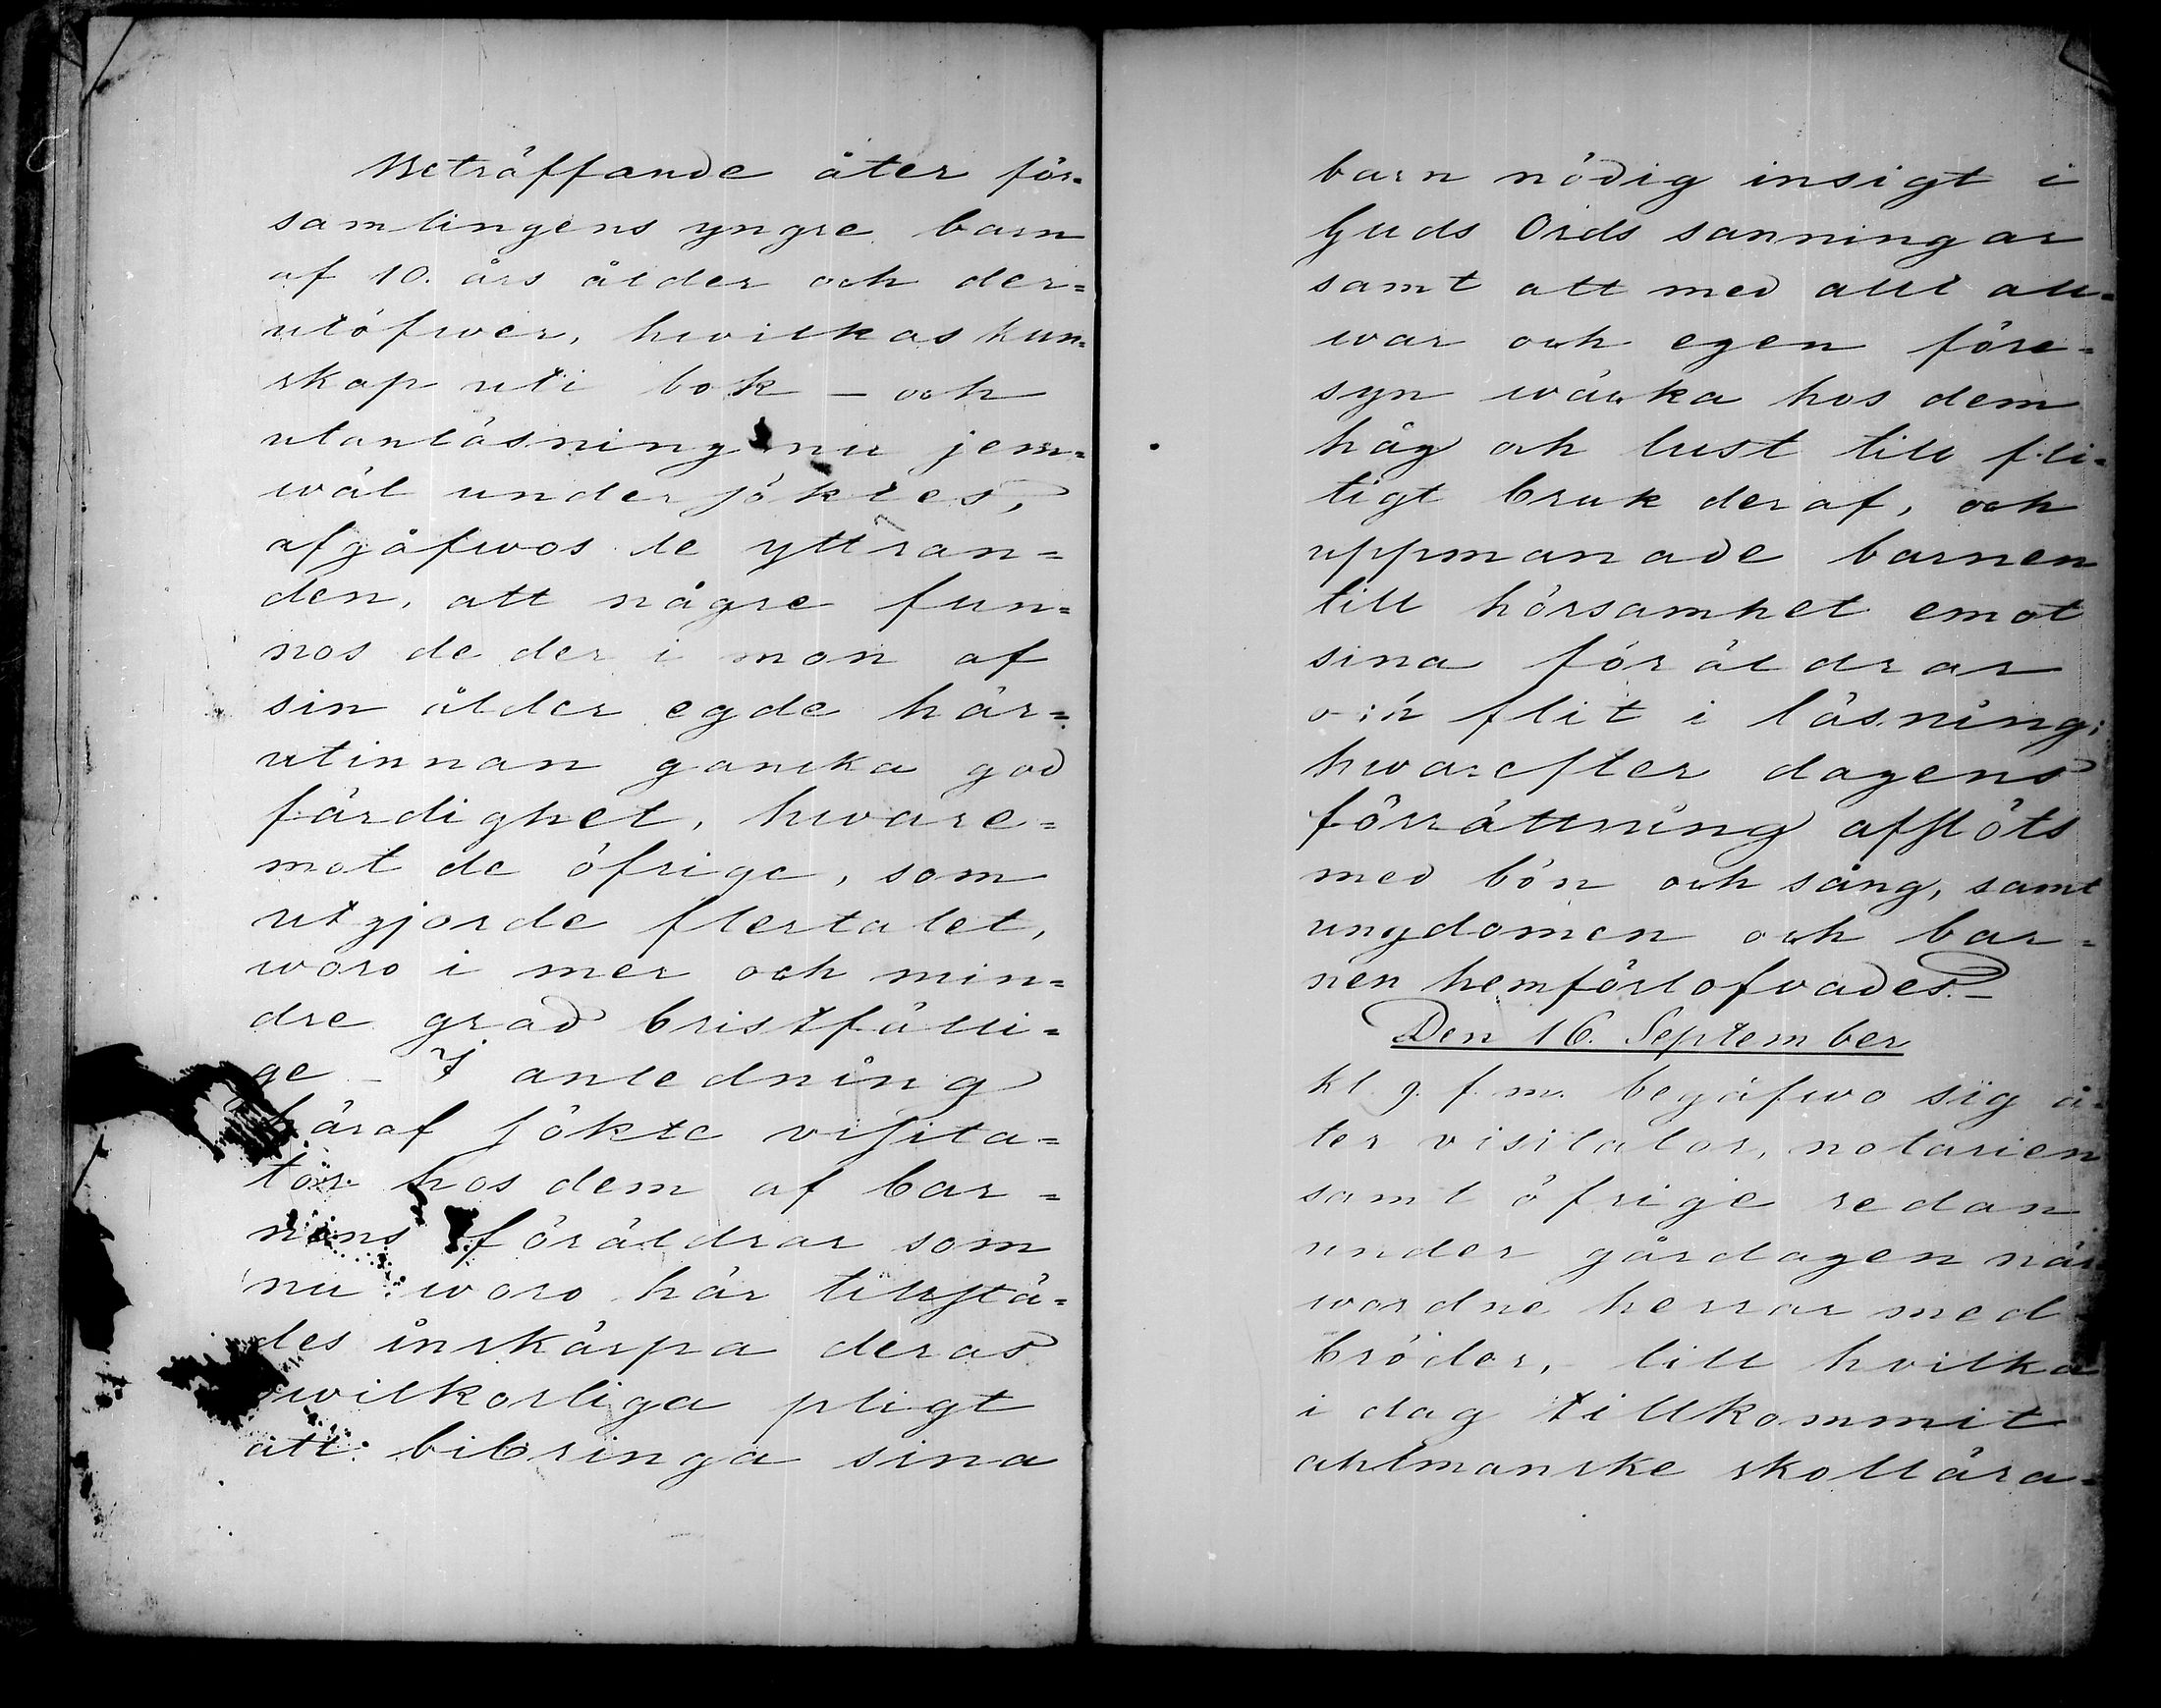 Beträffande åter för=
samlingens yngre barn
af 10. års ålder och der=
utöfwer, hwilkas kun=
skap uti bok - och
utanläsning nu jem=
wäl undersöktes,
afgåfwos de yttran=
den, att någre fun=
nos de der i mon af
sin ålder egde här=
utinnan ganska god
färdighet, hwáre=
mot de öfrige, som
utgjorde flertalet,
woro i mer och min=
dre grad bristfälli=
ge - I anledning
häraf sökte visita=
tor hos dem af bar=
nens föräldrar som
nu woro här tillstä=
des inskärpa deras
owilkorliga pligt
att bibringa sina
barn nödig insigt i
Guds Ords sanningar
samt att med allt all=
war och egen före=
syn wäcka hos dem
håg och lust till fli=
tigt bruk deraf, och
uppmanade barnen
till hörsamhet emot
sina föräldrar
och flit i läsning;
hwarefter dagens
förrättning afslöts
med bön och sång, samt
ungdomen och bar=
nen hemförlofvades. -
Den 16. September
kl. 9. f. m. begåfwo sig å=
ter visitator, notarien
samt öfrige redan
under gårdagen när=
wordne herrar med=
bröder, till hvilka
i dag tillkommit
ahlmanske skollära=